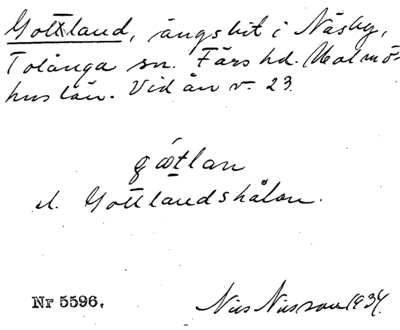 Gottland, ängsbit i Näsby,
Tolånga sn. Färs hd. Malmö-
hus län. Vid ån v. 23.
gåtlan
el. Gottlandshålan.
Nr 5596.
Nils Nilsson 1934.